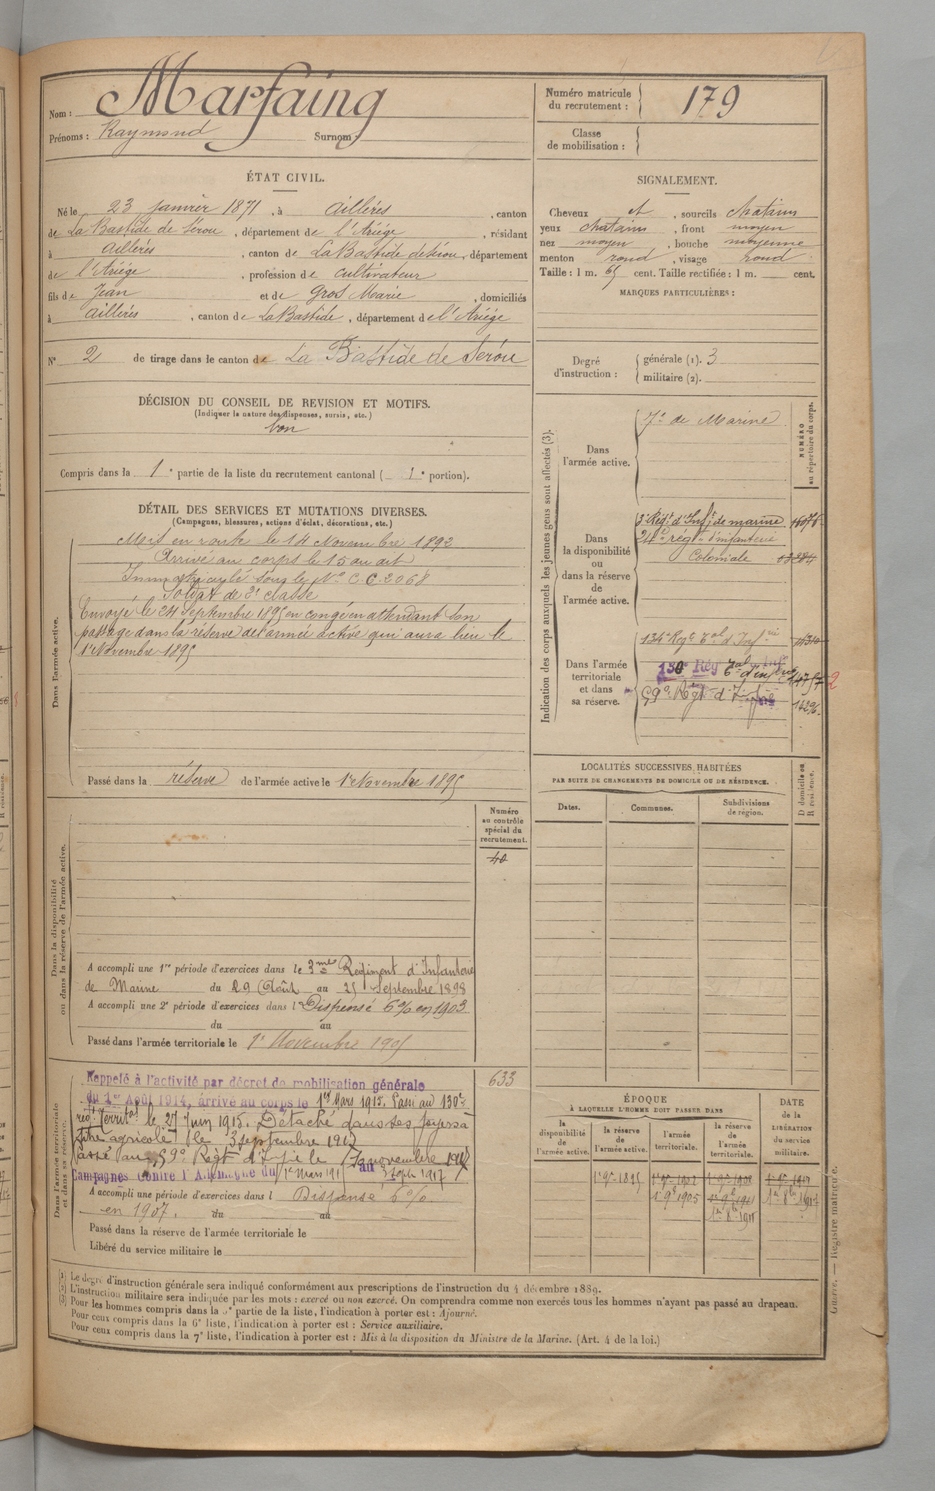 Nom : Marfaing
Prénoms : Raymond Surnom
Numéro matricule du recrutement : 179
Classe de mobilisation :
ÉTAT CIVIL.
Né le 23 Janvier 1871, à Aillères, canton
de La Bastide de Sérou, département de l'Ariége, résidant
à Aillères, canton de La Bastide de Sérou, département
de l'Ariége, profession de cultivateur
fils de Jean et de Gros Marie, domiciliés
à Aillères, canton de La Bastide, département de l'Ariége
N° 2 de tirage dans le canton de La Bastide de Sérou
SIGNALEMENT.
Cheveux et, sourcils chatains
yeux chatains, front moyen
nez moyen, bouche moyenne
menton rond, visage rond
Taille : 1 m. 65 cent. Taille rectifiée : 1 m. cent.
MARQUES PARTICULIÈRES :
Degré d'instruction : générale (1). 3
militaire (2).
DÉCISION DU CONSEIL DE REVISION ET MOTIFS.
(Indiquer la nature des dispenses, sursis, etc.)
bon
Compris dans la 1e partie de la liste du recrutement cantonal ( 1e portion).
DÉTAIL DES SERVICES ET MUTATIONS DIVERSES.
(Campagnes, blessures, actions d'éclat, décorations, etc.)
Dans l'armée active.
Mis en route le 14 Novembre 1892
Arrivé au corps le 15 au dit
Immatriculé sous le N° CC 2068
Soldat de 2e classe
Envoyé le 24 Septembre 1895 en congé en attendant son
passage dans la réserve de l'armée active qui aura lieu le
1er Novembre 1895
Passé dans la réserve de l'armée active le 1er Novembre 1895
Indication des corps auxquels les jeunes gens sont affectés (3).
NUMÉRO au répertoire du corps.
Dans l'armée active.
7e de Marine
Dans la disponibilité ou dans la réserve de l'armée active.
3e Régt d'Inft de marine
24e régt d'infanterie
Coloniale
Dans l'armée territoriale et dans sa réserve.
134e Régt Tal d'Inf
130e Rég Tal d'inf
59e Régt d'Inf
LOCALITÉS SUCCESSIVES HABITÉES
PAR SUITE DE CHANGEMENTS DE DOMICILE OU DE RÉSIDENCE.
D domicile ou R résidence.
Dates. Communes. Subdivisions de région.
Dans la disponibilité ou dans la réserve de l'armée active.
Numéro au contrôle spécial du recrutement.
40
A accompli une 1re période d'exercices dans le 3me Régiment d'Infanterie
de Marine du 29 Août au 25 Septembre 1898
A accompli une 2e période d'exercices dans l Dispensé 6% en 1903
du au
Passé dans l'armée territoriale le 1er Novembre 1905
Dans l'armée territoriale et dans sa réserve.
633
Rappelé à l'activité par décret de mobilisation générale
du 1er Août 1914, arrivé au corps le 1er Mars 1915. Passé au 130e
régt Territal le 27 Juin 1915. Détaché dans ses foyers à
titre agricole le 3 septembre 1917
passé au 59e Régt d'Infie le 17 novembre
Campagnes contre l'Allemagne du 1er Mars 191 au 3 Sepbre 1917
A accompli une période d'exercices dans l Dispensé 6%
en 1907. du au
Passé dans la réserve de l'armée territoriale le
Libéré du service militaire le
ÉPOQUE
À LAQUELLE L'HOMME DOIT PASSER DANS
la disponibilité de l'armée active. la réserve de l'armée active. l'armée territoriale. la réserve de l'armée territoriale.
DATE de la LIBÉRATION du service militaire.
1er 9e 1895
1er 9e 1905
(1) Le degré d'instruction générale sera indiqué conformément aux prescriptions de l'instruction du 4 décembre 1889.
(2) L'instruction militaire sera indiquée par les mots : exercé ou non exercé. On comprendra comme non exercés tous les hommes n'ayant pas passé au drapeau.
(3) Pour les hommes compris dans la 5e partie de la liste, l'indication à porter est : Ajourné.
Pour ceux compris dans la 6e liste, l'indication à porter est : Service auxiliaire.
Pour ceux compris dans la 7e liste, l'indication à porter est : Mis à la disposition du Ministre de la Marine. (Art. 4 de la loi.)
Guerre. — Registre matricule.